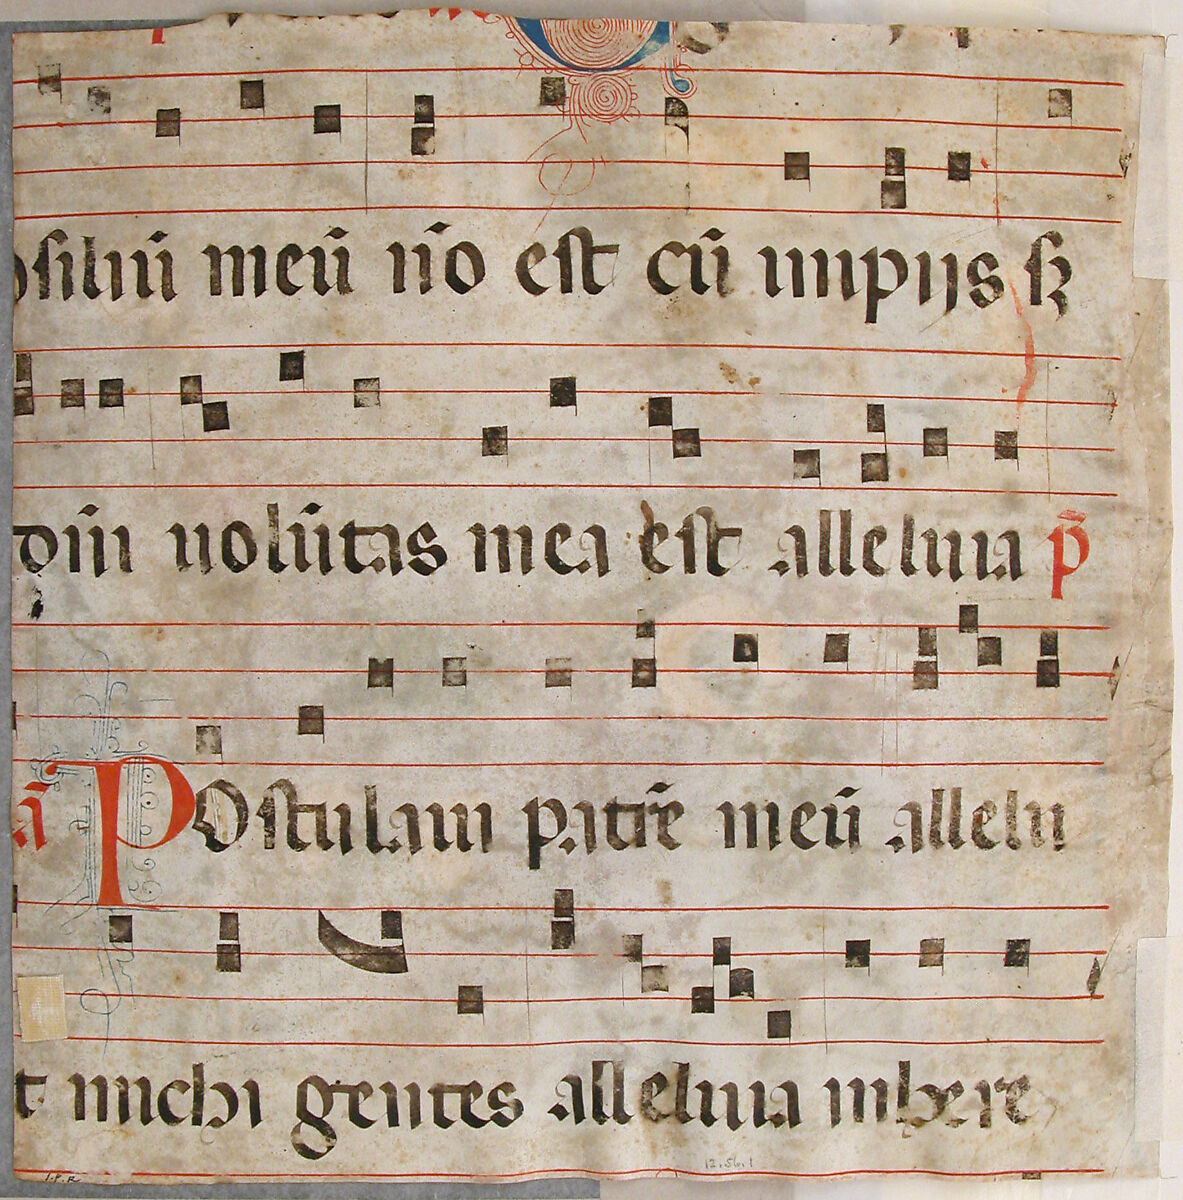 osiliū meū nō est cū impijs sꝫ
dn̄i uolūtas mea est alleluia p̄
ā Postulaui patrē meū allelu
t michi gentes alleluia inhere
I.P.R 12.56.1